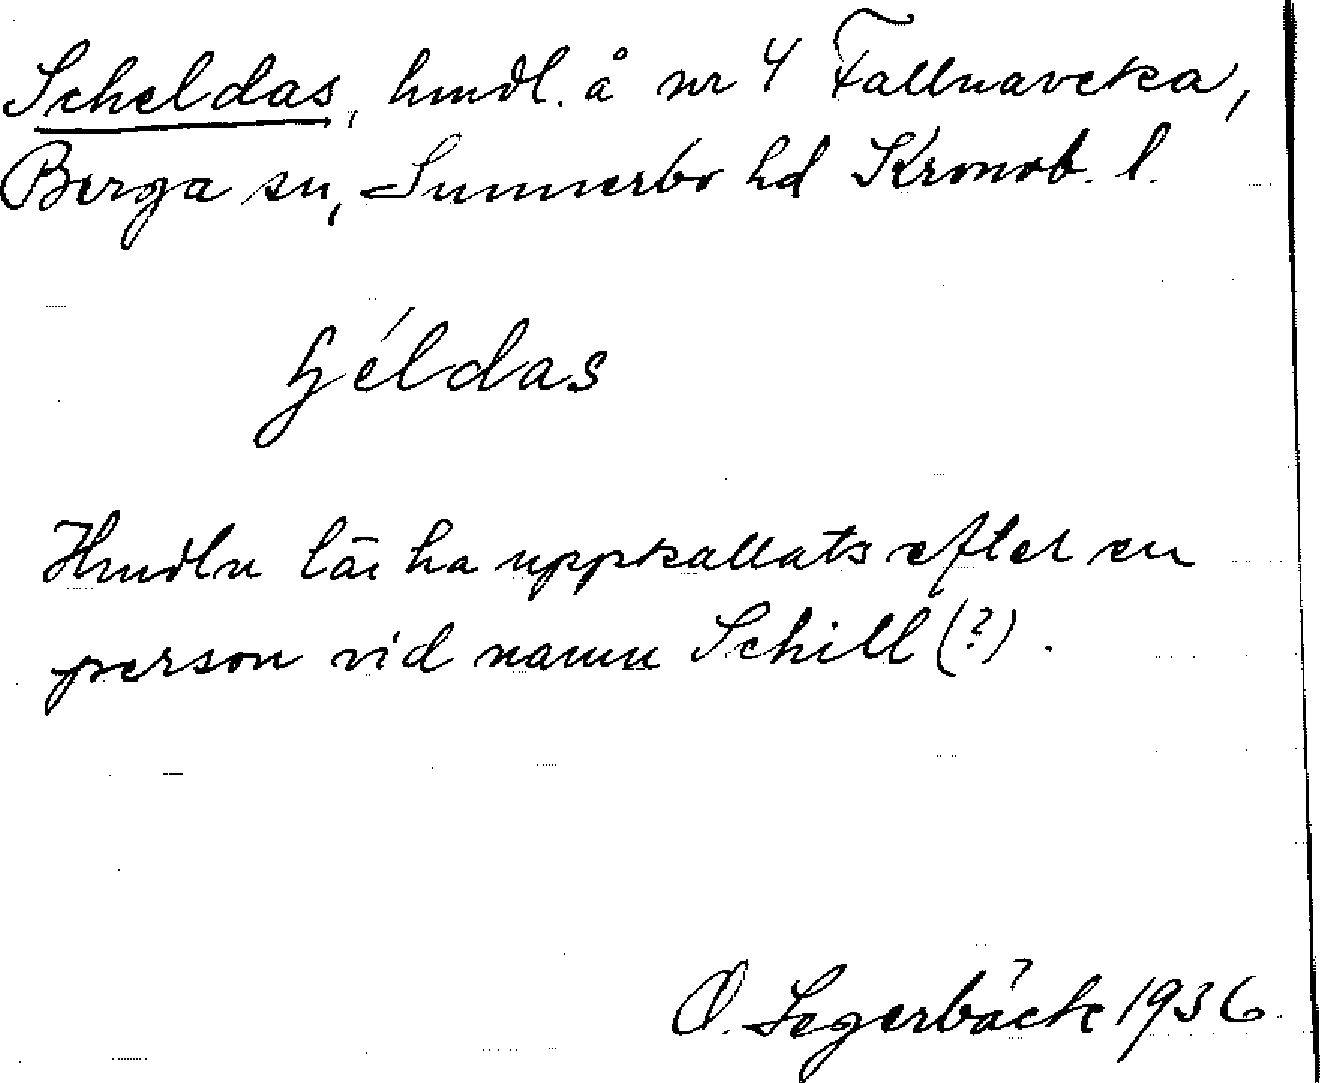 Scheldas, hmdl. å nr 4 Fallnaveka,
Berga sn, Sunnerbo hd Kronob. l.
ɧéldas
Hmdln lär ha uppkallats efter en
person vid namn Schill (?).
O. Segerbäck 1936